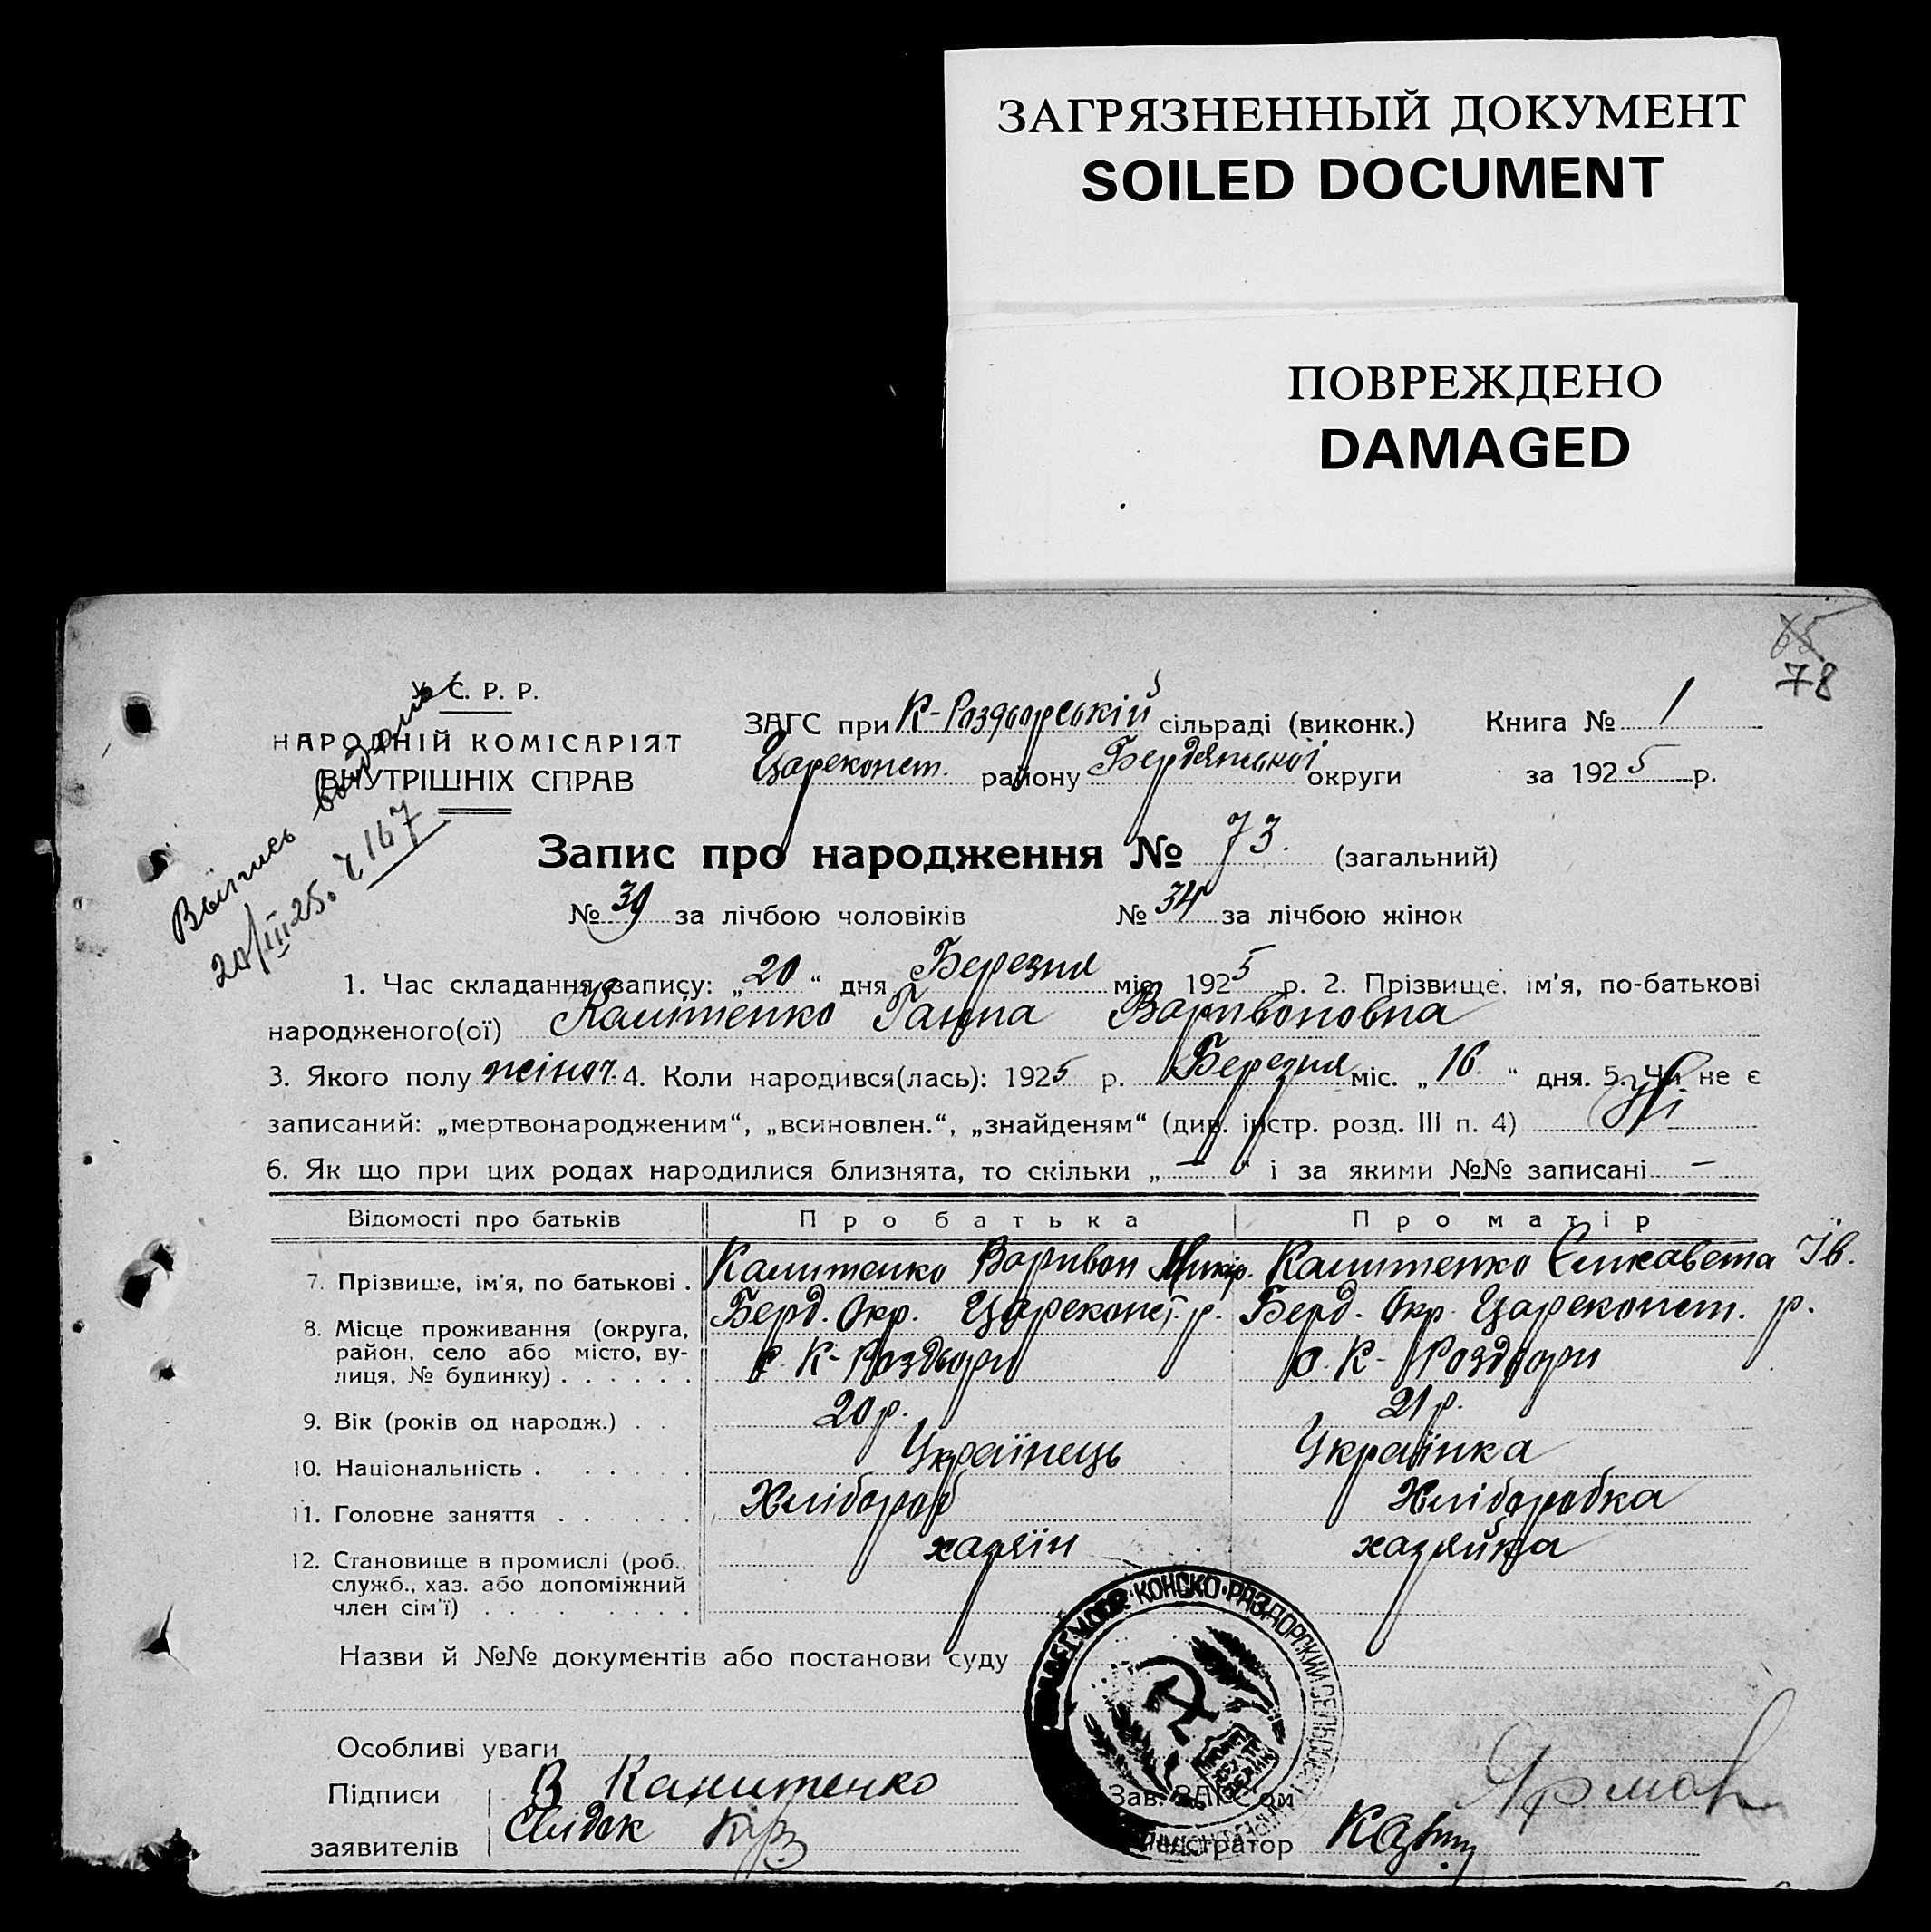 ЗАГРЯЗНЕННЫЙ ДОКУМЕНТ
SOILED DOCUMENT
ПОВРЕЖДЕНО
DAMAGED
65
78
У. С. Р. Р.
НАРОДНІЙ КОМІСАРІЯТ
ВНУТРІШНІХ СПРАВ
Выпись выдана
20/III 25. 167
ЗАГС при К-Роздорській сільраді (виконк.) Книга № 1
Цареконст. району Бердянської округи за 1925 р.
Запис про народження № 73. (загальний)
№ 39 за лічбою чоловіків № 34 за лічбою жінок
1. Час складання запису: „20“ дня Березня міс. 1925 р. 2. Прізвище, ім'я, по-батькові
народженого(ої) Калитенко Ганна Варивоновна
3. Якого полу жіноч. 4. Коли народився(лась): 1925 р. Березня міс. „16“ дня. 5. Чи не є
записаний: „мертвонародженим“, „всиновлен.“, „знайденям“ (див. інстр. розд. III п. 4)
6. Як що при цих родах народилися близнята, то скільки „—“ і за якими №№ записані —
Відомості про батьків Про батька Про матір
7. Прізвище, ім'я, по батькові . Калитенко Варивон Калитенко Єлисавета Ів.
8. Місце проживання (округа, Берд. Окр. Цареконст. р. Берд. Окр. Цареконст. р.
район, село або місто, ву- с. К-Роздори с. К-Роздори
лиця, № будинку) . . . . . .
9. Вік (років од народж.) . . 20 р. 21 р.
10. Національність . . . . . . Українець Українка
11. Головне заняття . . . . . . Хлібороб Хліборобка
12. Становище в промислі (роб., хазяїн хазяйка
служб., хаз. або допоміжний
член сім'ї) . . . . . . . .
Назви й №№ документів або постанови суду
КОНСКО-РАЗДОРСКИЙ СЕЛЬСОВЕТ
Особливі уваги
Підписи В Калитенко Зав. ЗАГС'ом
заявителів Свидок Реєстратор